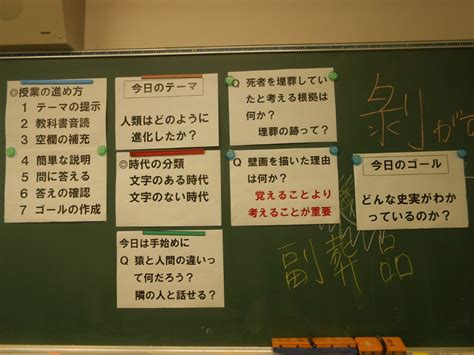 ◎授業の進め方
1 テーマの提示
2 教科書音読
3 空欄の補充
4 簡単な説明
5 問に答える
6 答えの確認
7 ゴールの作成
今日のテーマ
人類はどのように
進化したか?
◎時代の分類
文字のある時代
文字のない時代
今日は手始めに
Q 猿と人間の違いっ
て何だろう?
隣の人と話せる?
Q 死者を埋葬してい
たと考える根拠は
何か?
埋葬の跡って?
Q 壁画を描いた理由
は何か?
覚えることより
考えることが重要
剥がす
今日のゴール
どんな史実がわか
っているのか?
副葬品